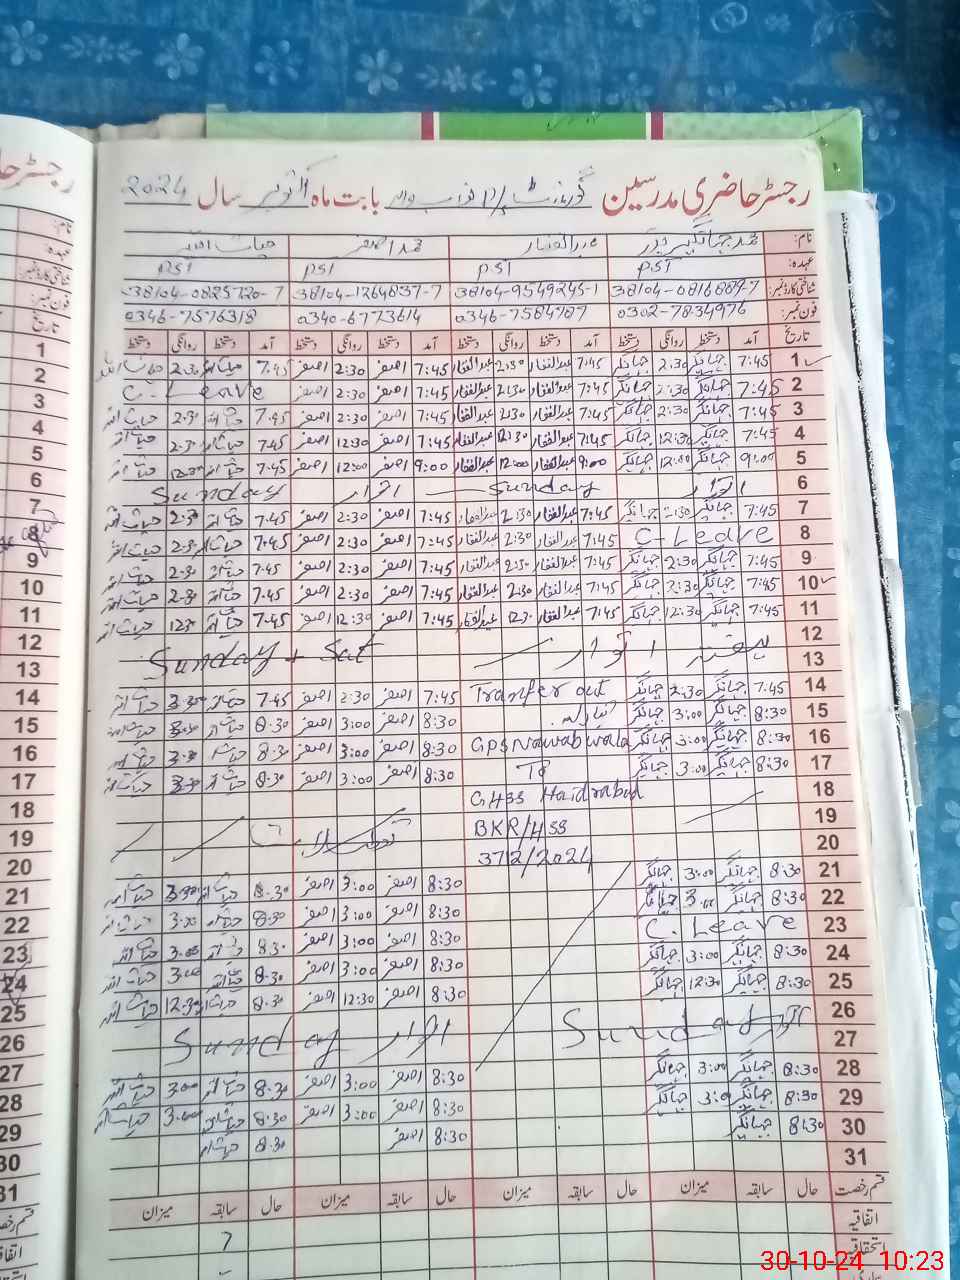 رجسٹر حاضری مدرسین گورنمنٹ P/S نواب والہ بابت ماہ اکتوبر سال 2024
نام: محمد جہانگیر عبدالغفار محمد اصغر حیات اللہ
عہدہ: PST PST PST PST
شناختی کارڈ نمبر: 38104-9549245-1 38104-1264837-7 38104-0825720-7
فون نمبر: 0302-7834976 0346-7584787 0340-6773614 0346-7576318
تاریخ آمد دستخط روانگی دستخط آمد دستخط روانگی دستخط آمد دستخط روانگی دستخط آمد دستخط روانگی دستخط
1 7:45 جہانگیر 2:30 جہانگیر 7:45 عبدالغفار 2:30 عبدالغفار 7:45 اصغر 2:30 اصغر 7:45 حیات اللہ 2:30 حیات اللہ
2 7:45 جہانگیر 2:30 جہانگیر 7:45 عبدالغفار 2:30 عبدالغفار 7:45 اصغر 2:30 اصغر C. Leave
3 7:45 جہانگیر 2:30 جہانگیر 7:45 عبدالغفار 2:30 عبدالغفار 7:45 اصغر 2:30 اصغر 7:45 حیات اللہ 2:30 حیات اللہ
4 7:45 جہانگیر 12:30 جہانگیر 7:45 عبدالغفار 12:30 عبدالغفار 7:45 اصغر 12:30 اصغر 7:45 حیات اللہ 2:30 حیات اللہ
5 9:00 جہانگیر 12:00 جہانگیر 9:00 عبدالغفار 12:00 عبدالغفار 9:00 اصغر 12:00 اصغر 7:45 حیات اللہ حیات اللہ
6 اتوار Sunday اتوار Sunday
7 7:45 جہانگیر 2:30 جہانگیر 7:45 عبدالغفار 2:30 عبدالغفار 7:45 اصغر 2:30 اصغر 7:45 حیات اللہ 2:30 حیات اللہ
8 C-Leave 7:45 عبدالغفار 2:30 عبدالغفار 7:45 اصغر 2:30 اصغر 7:45 حیات اللہ 2:30 حیات اللہ
9 7:45 جہانگیر 2:30 جہانگیر 7:45 عبدالغفار 2:30 عبدالغفار 7:45 اصغر 2:30 اصغر 7:45 حیات اللہ 2:30 حیات اللہ
10 7:45 جہانگیر 2:30 جہانگیر 7:45 عبدالغفار 2:30 عبدالغفار 7:45 اصغر 2:30 اصغر 7:45 حیات اللہ 2:30 حیات اللہ
11 7:45 جہانگیر 12:30 جہانگیر 7:45 عبدالغفار 12:30 عبدالغفار 7:45 اصغر 12:30 اصغر 7:45 حیات اللہ حیات اللہ
12
13 ہفتہ اتوار Sunday + Sat
14 7:45 جہانگیر 2:30 جہانگیر Tranfer out 7:45 اصغر 2:30 اصغر 7:45 حیات اللہ حیات اللہ
15 8:30 جہانگیر 3:00 جہانگیر تبادلہ 8:30 اصغر 3:00 اصغر 8:30 حیات اللہ حیات اللہ
16 8:30 جہانگیر 3:00 جہانگیر GPS Nawab wala 8:30 اصغر 3:00 اصغر 8:30 حیات اللہ حیات اللہ
17 8:30 جہانگیر 3:00 جہانگیر To 8:30 اصغر 3:00 اصغر 8:30 حیات اللہ حیات اللہ
18 GHSS Haidrabad
19 BKR/HSS تعطیلات
20 3712/2024
21 8:30 جہانگیر 3:00 جہانگیر 8:30 اصغر 3:00 اصغر 8:30 حیات اللہ حیات اللہ
22 8:30 جہانگیر 3:00 جہانگیر 8:30 اصغر 3:00 اصغر 8:30 حیات اللہ 3:00 حیات اللہ
23 C. Leave 8:30 اصغر 3:00 اصغر 8:30 حیات اللہ 3:00 حیات اللہ
24 8:30 جہانگیر 3:00 جہانگیر 8:30 اصغر 3:00 اصغر 8:30 حیات اللہ 3:00 حیات اللہ
25 8:30 جہانگیر 12:30 جہانگیر 8:30 اصغر 12:30 اصغر 8:30 حیات اللہ 12:30 حیات اللہ
26
27 اتوار Sunday اتوار Sunday
28 8:30 جہانگیر 3:00 جہانگیر 8:30 اصغر 3:00 اصغر 8:30 حیات اللہ 3:00 حیات اللہ
29 8:30 جہانگیر 3:00 جہانگیر 8:30 اصغر 3:00 اصغر 8:30 حیات اللہ 3:00 حیات اللہ
30 8:30 جہانگیر 8:30 اصغر 8:30 حیات اللہ
31
قسم رخصت حال سابقہ میزان حال سابقہ میزان حال سابقہ میزان حال سابقہ میزان
اتفاقیہ
استحقاقیہ
30-10-24 10:23